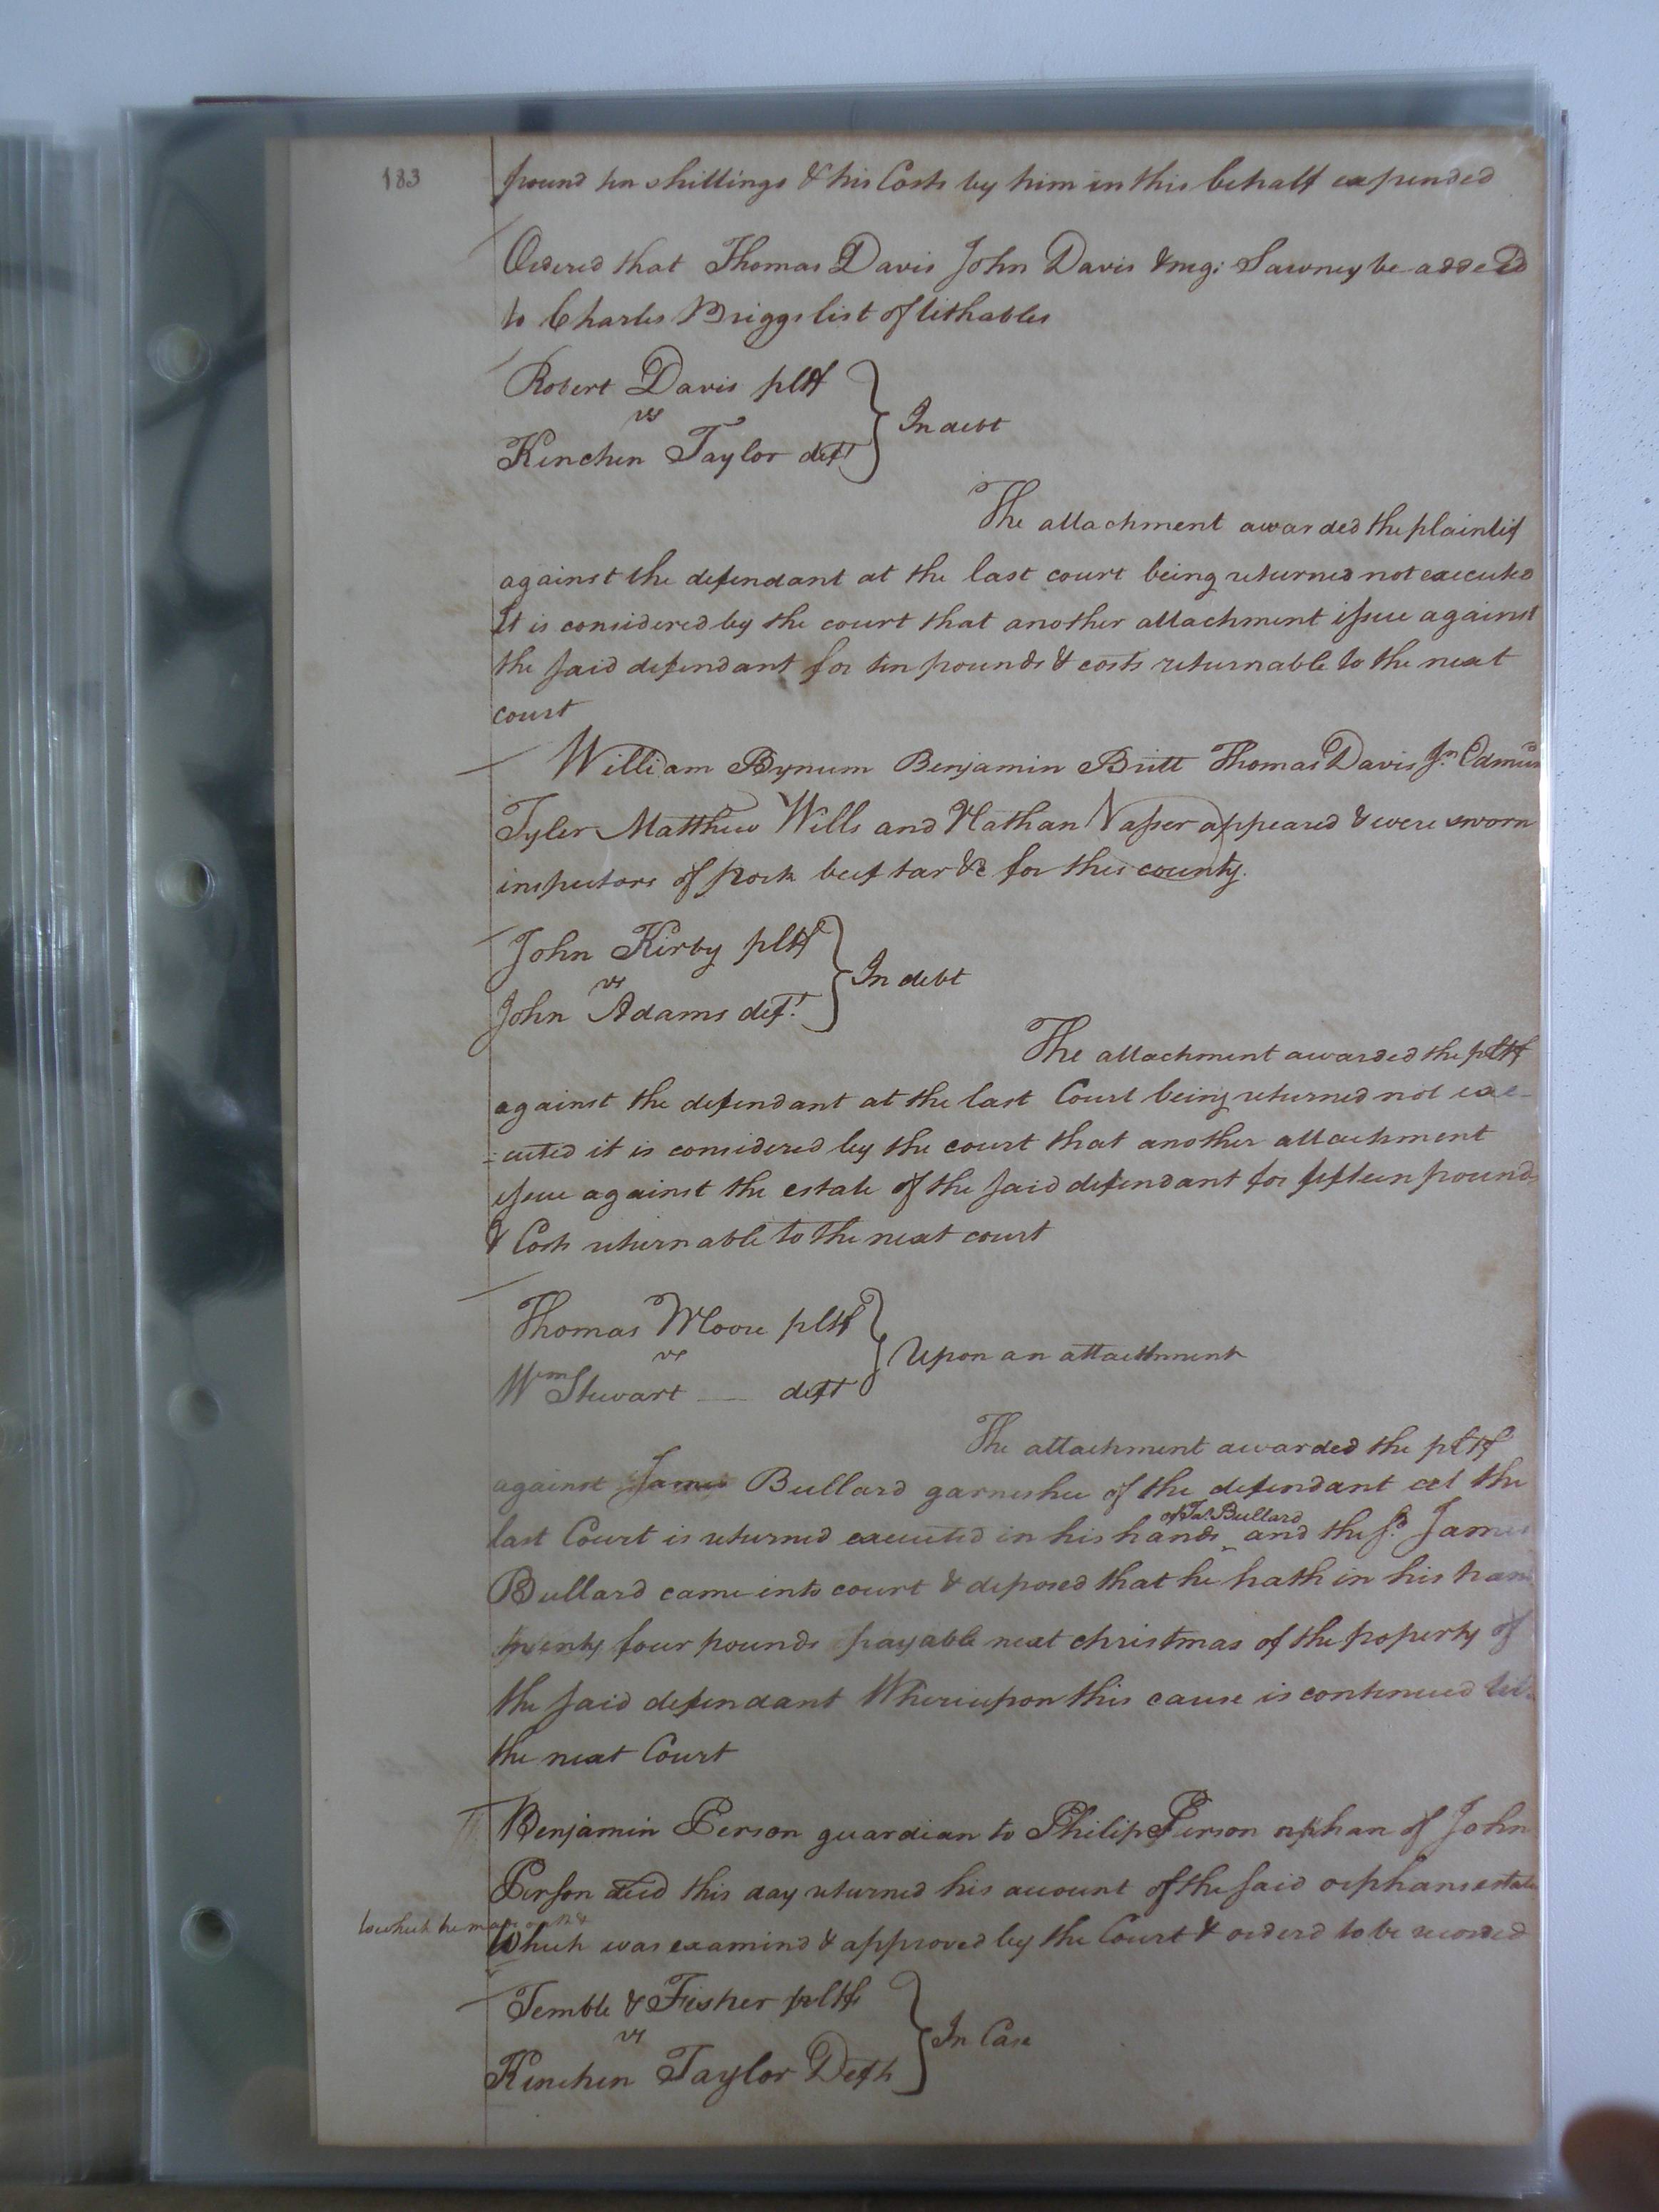 183
pound ten shillings & his Costs by him in this behalf expended
Ordered that Thomas Davis John Davis & neg: Sawney be added
to Charles Briggs list of tithables
Robert Davis pltf
vs
Kinchen Taylor deft
In debt
The attachment awarded the plaintif
against the defendant at the last court being returned not executed
It is considered by the court that another attachment issue against
the said defendant for ten pounds & costs returnable to the next
court
William Bynum Benjamin Britt Thomas Davis Jr. Edmund
Tyler Matthew Wills and Nathan Vasser appeared & were sworn
inspectors of pork beef tar &c for this county.
John Kirby pltf
vs
John Adams deft.
In debt
The attachment awarded the pltf
against the defendant at the last Court being returned not exe-
-cuted it is considered by the court that another attachment
issue against the estate of the said defendant for fifteen pounds
& Costs returnable to the next court
Thomas Moore pltf
vs
Wm Stewart — deft
Upon an attachment
The attachment awarded the pltf
against James Bullard garneshee of the defendant at the
of Jas. Bullard
last Court is returned executed in his hands and the sd. James
Bullard came into court & deposed that he hath in his hand
twenty four pounds payable next christmas of the poperty of
the said defendant Whereupon this cause is continued till
the next Court
Benjamin Person guardian to Philip Person orphan of John
Person decd this day returned his account of the said orphans estate
to which he made oath &
Which was examind & approved by the Court & orderd to be recorded
Temble & Fisher pltfs
vs
Kinchen Taylor Deft
In Case